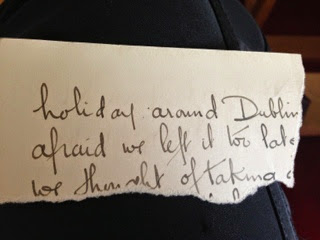 holiday around Dublin
afraid we left it too late
we thought of taking